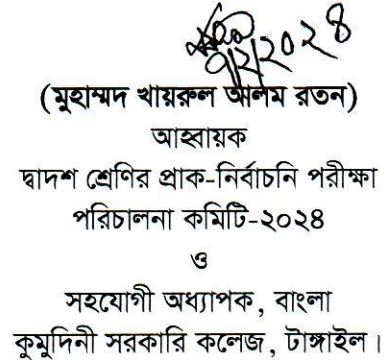 ৭/২/২০২৪
(মুহাম্মদ খায়রুল আলম রতন)
আহ্বায়ক
দ্বাদশ শ্রেণির প্রাক-নির্বাচনি পরীক্ষা
পরিচালনা কমিটি-২০২৪
ও
সহযোগী অধ্যাপক, বাংলা
কুমুদিনী সরকারি কলেজ, টাঙ্গাইল।